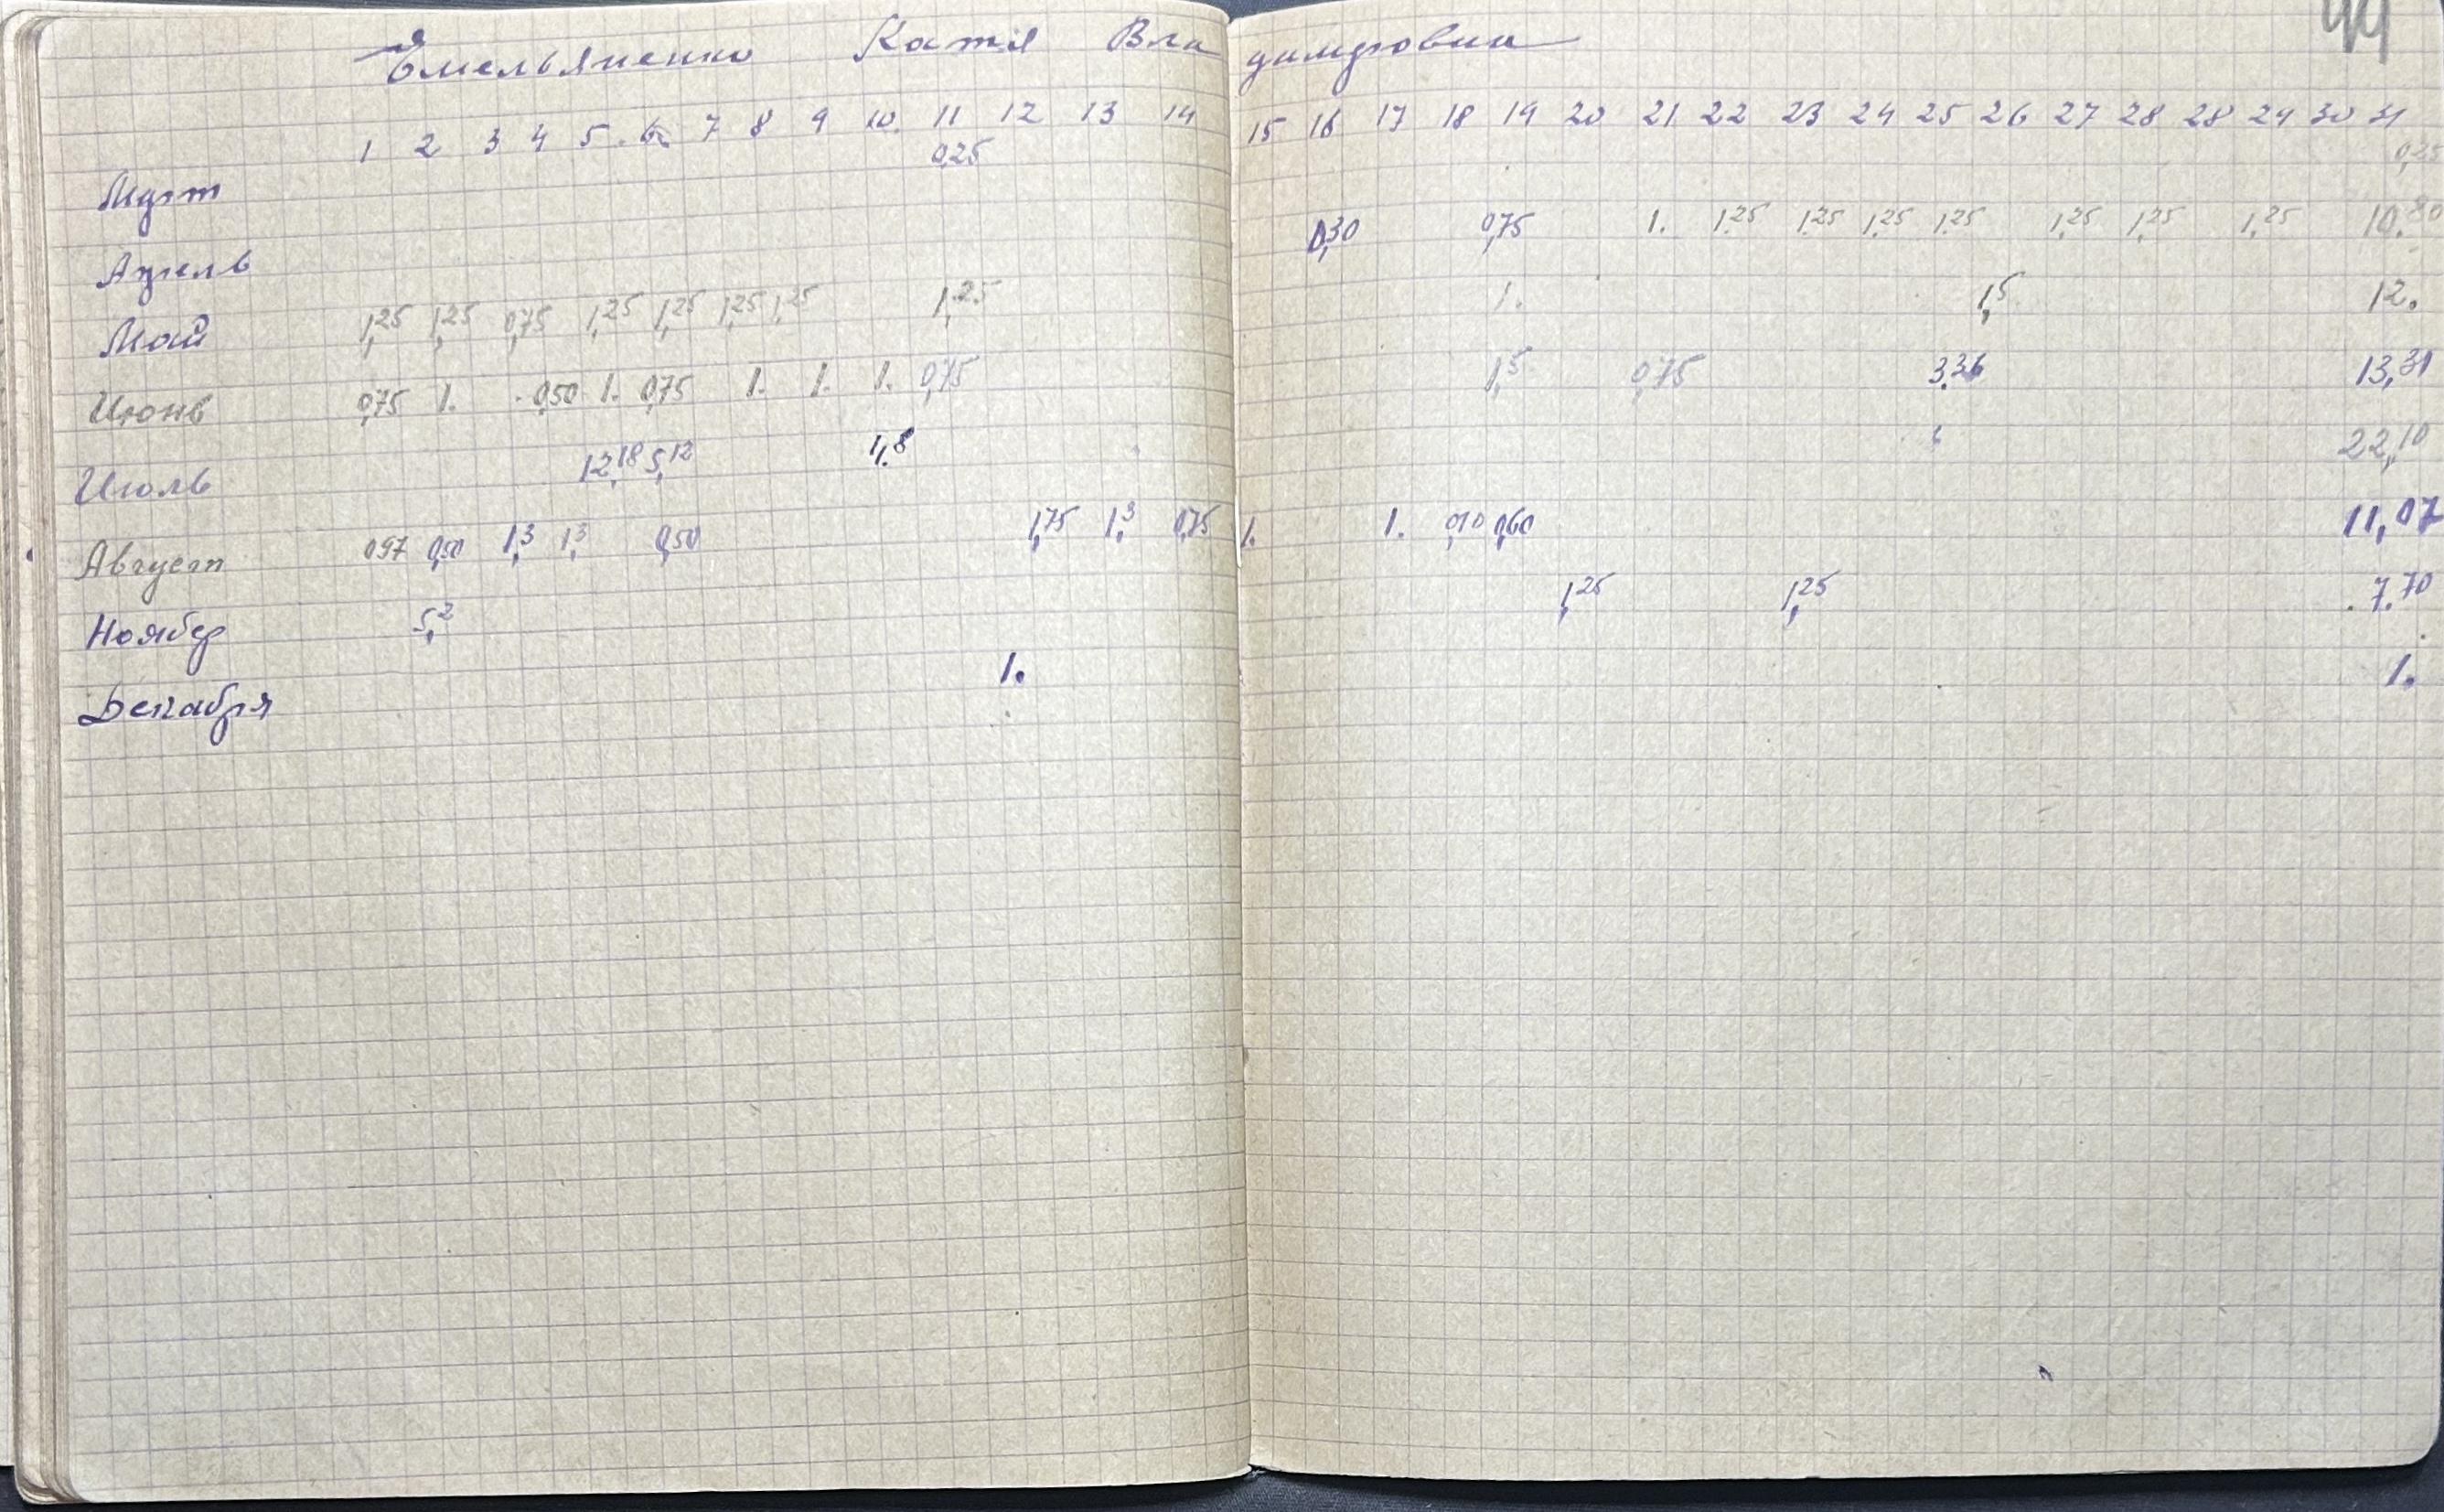 44
Емельяненко Катя Владимировна
1 2 3 4 5. 6 7 8 9 10. 11 12 13 14 15 16 17 18 19 20 21 22 23 24 25 26 27 28 28 29 30 31
Март 0,25 0,25
Апрель 0,30 0,75 1. 1,25 1,25 1,25 1,25 1,25 1,25 1,25 10.80
Май 1,25 1,25 0,75 1,25 1,25 1,25 1,25 1,25 1. 1,5 12.
Июнь 0,75 1. 0,50 1. 0,75 1. 1. 1. 0,75 1,5 0,75 3.36 13,31
Июль 12,18 5,12 4,8 22,10
Август 0,97 0,50 1,3 1,3 0,50 1,75 1,3 0,75 1. 1. 0,10 0,60 11,07
Ноябр 5,2 1,25 1,25 7.70
Декабря 1. 1.